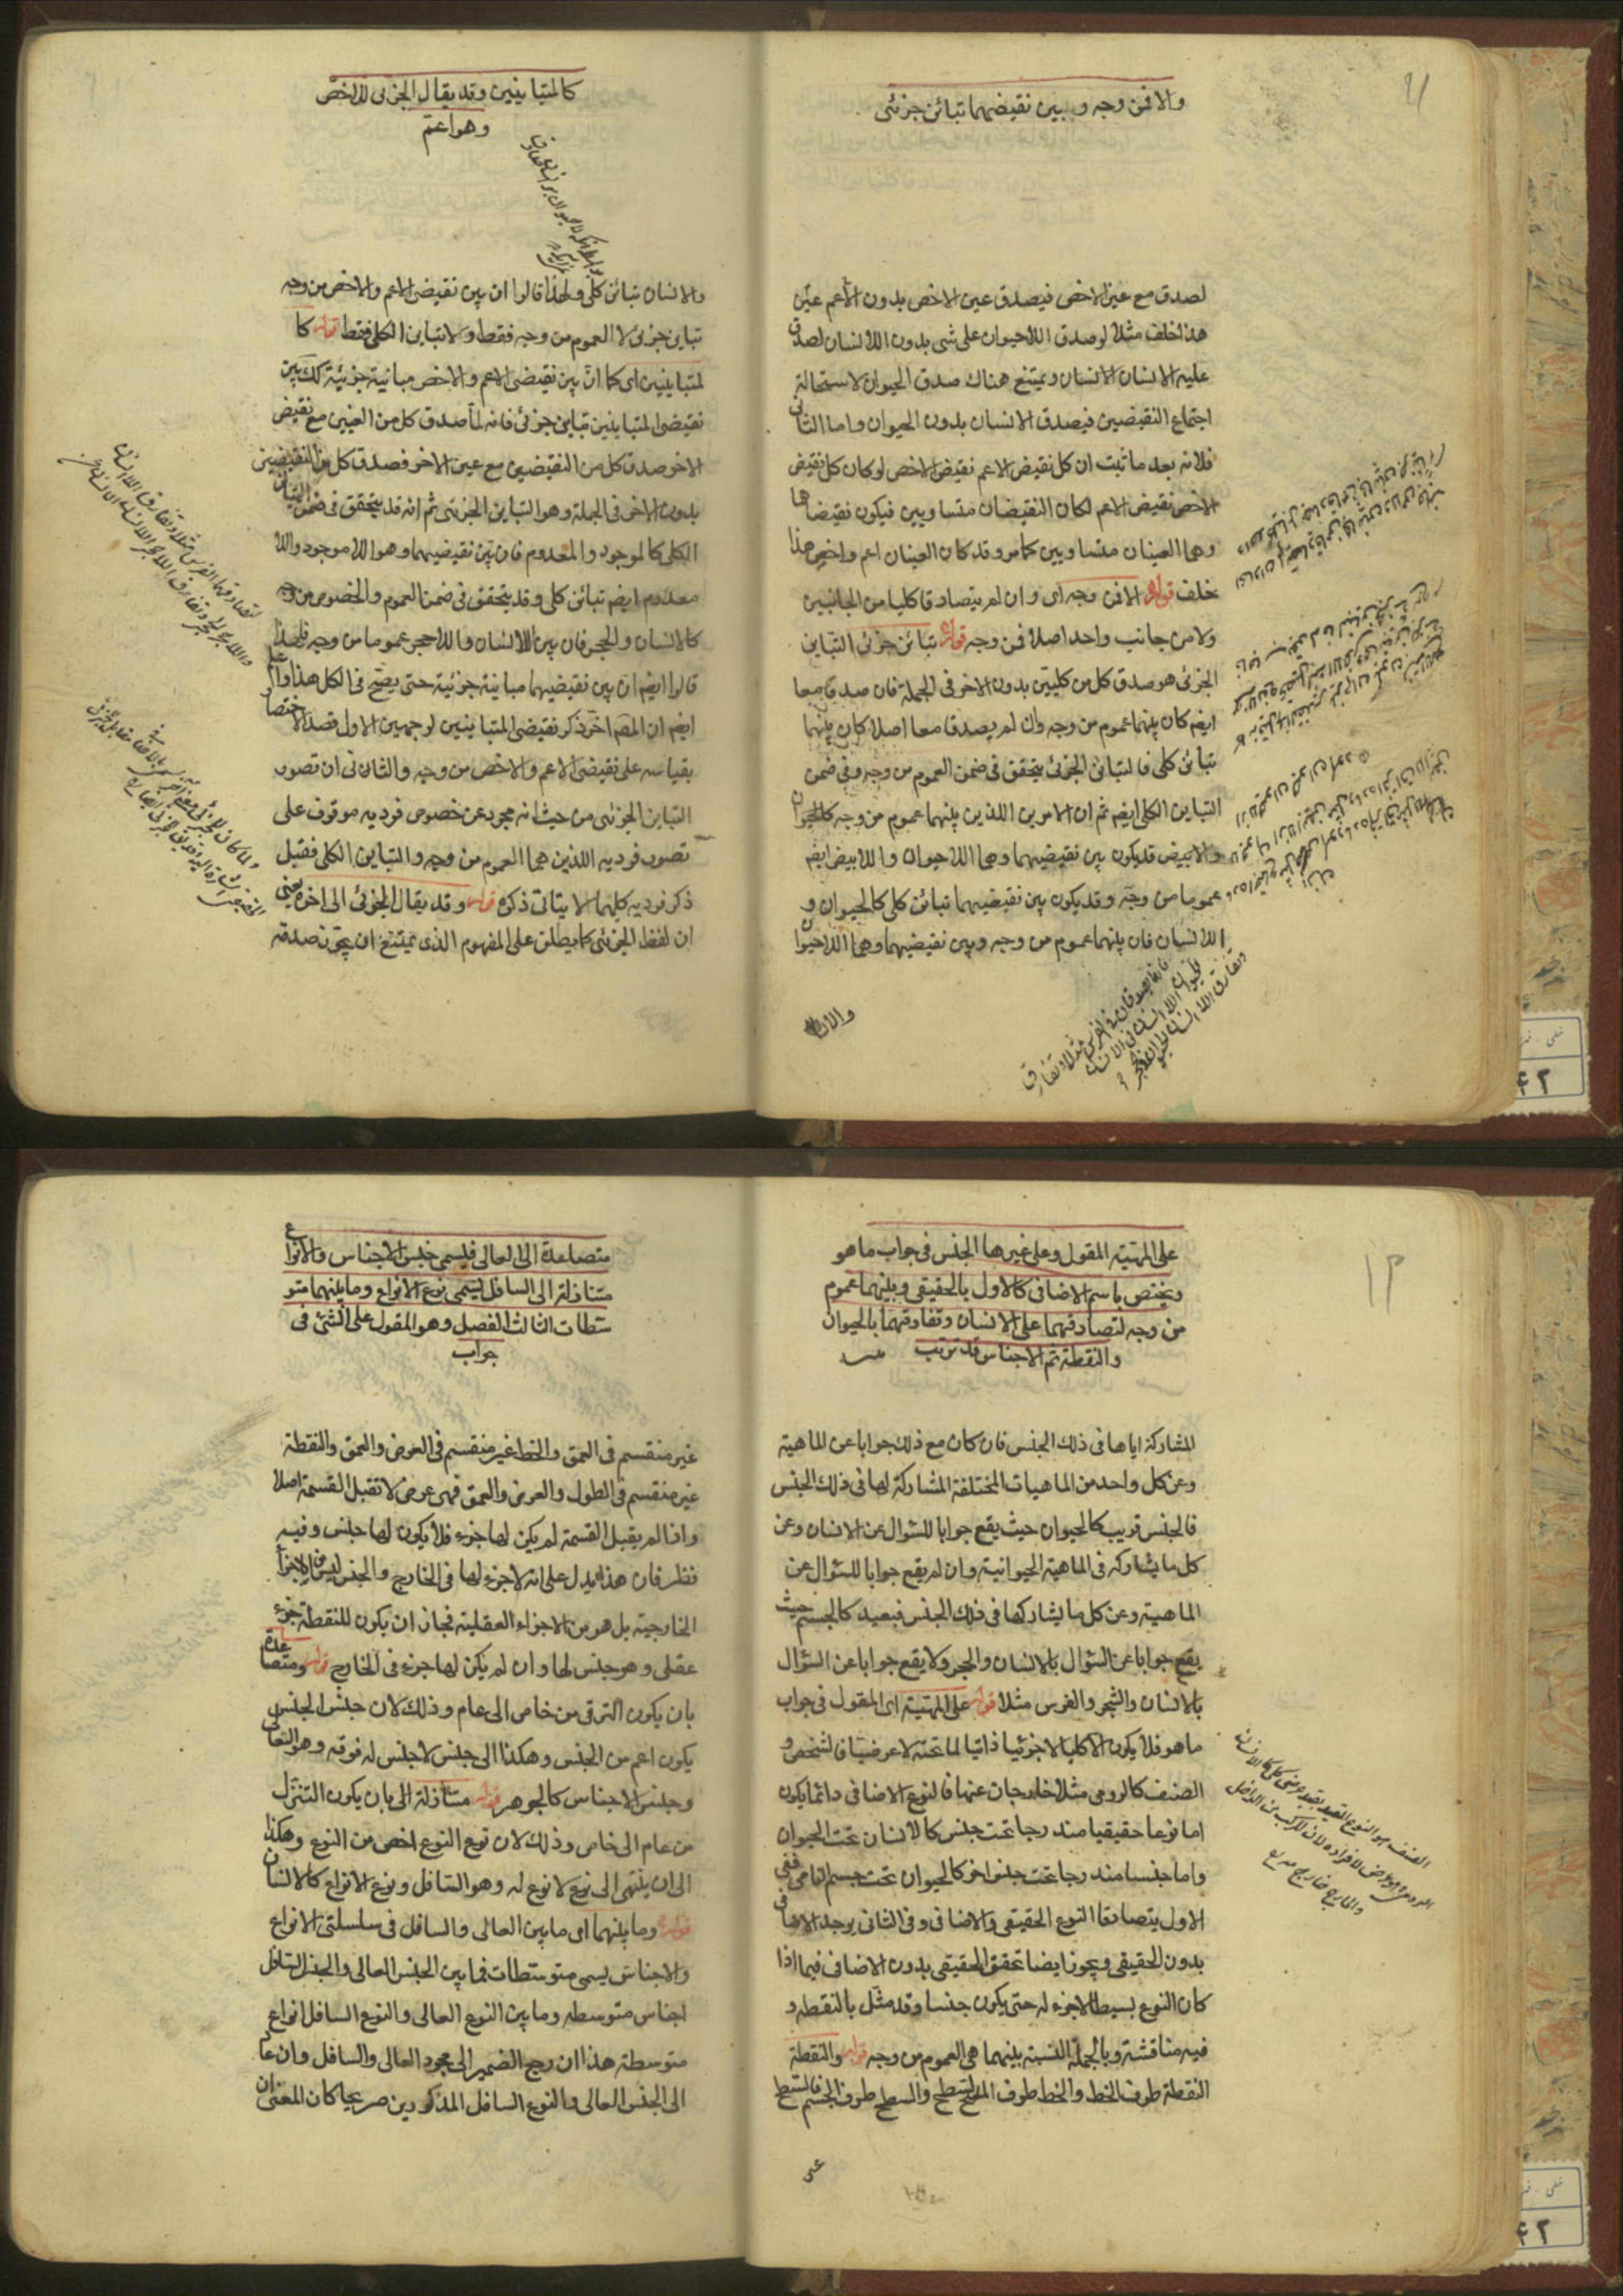 والا فمن وجه وبين نقيضيهما تبائن جزئى
لصدق مع عين الاخص فيصدق عين الاخص بدون الأعم عين
هذا خلف مثلا لو صدق اللاحيوان على شئ بدون اللا نسان لصدق
عليه الانسان الانسان ويمتنع هناك صدق الحيوان لاستحالة
اجتماع النقيضين فيصدق الانسان بدون الحيوان واما الثانى
فلانه بعد ما ثبت ان كل نقيض الاعم نقيض الاخص لو كان كل نقيض
الاخص نقيض الاعم لكان النقيضان متساويين فيكون نقيضاهما
وهما العينان متساويين كما مر وقد كان العينان اعم واخص هذا
خلف قوله الا فمن وجه اى وان لم يتصادقا كليا من الجانبين
ولا من جانب واحد اصلا فمن وجه قوله تبائن جزئى التباين
الجزئى هو صدق كل من كليين بدون الاخر فى الجملة فان صدقا معا
ايضا كان بينهما عموم من وجه وان لم يصدقا معا اصلا كان بينهما
تبائن كلى فالتبائن الجزئى يتحقق فى ضمن العموم من وجه وفى ضمن
التباين الكلى ايضا ثم ان الامرين اللذين بينهما عموم من وجه كالحيوان
والابيض قد يكون بين نقيضيهما وهما اللاحيوان واللابيض ايضا
عموما من وجه وقد يكون بين نقيضيهما تبائن كلى كالحيوان و
اللا نسان فان بينهما عموم من وجه وبين نقيضيهما وهما اللاحيوان
كالمتباينين وقد يقال الجزئى للاخص
وهو اعم
والانسان تبائن كلى ولهذا قالوا ان بين نقيضى الاعم والاخص من وجه
تباين جزئى لا العموم من وجه فقط ولا تباين الكلى فقط قوله كا
لمتباينين اى كما ان بين نقيضى الاعم والاخص مباينة جزئية كك بين
نقيضى المتباينين تباين جزئى فانه لما صدق كل من العينين مع نقيض
الاخر صدق كل من النقيضين مع عين الاخر فصدق كل من النقيضين
بدون الاخر فى الجملة وهو التباين الجزئى ثم انه قد يتحقق فى ضمن التباين
الكلى كالموجود والمعدوم فان بين نقيضيهما وهو اللاموجود واللا
معدوم ايضا تبائن كلى وقد يتحقق فى ضمن العموم والخصوص من وجه
كالانسان والحجر فان بين اللا نسان واللاحجر عموما من وجه فلهذا
قالوا ايضا ان بين نقيضيهما مباينة جزئية حتى يصح فى الكل هذا واعلم
ايضا ان المصم اخر ذكر نقيضى المتباينين لوجهين الاول قصد الاختصار
بقياسه على نقيضى الاعم والاخص من وجه والثانى ان تصور
التباين الجزئى من حيث انه مجرد عن خصوص فرديه موقوف على
تصور فرديه اللذين هما العموم من وجه والتباين الكلى فقبل
ذكر فرديه كليهما لا يتاتى ذكره قوله وقد يقال الجزئى الى اخره يعنى
ان لفظ الجزئى كما يطلق على المفهوم الذى يمتنع ان يجوز صدقه
على المهية المقول وعلى غيرها الجنس فى جواب ما هو
ويختص باسم الاضافى كالاول بالحقيقى وبينهما عموم
من وجه لتصادقهما على الانسان وتفارقهما بالحيوان
والنقطة ثم الاجناس قد تترتب
المشاركة اياها فى ذلك الجنس فان كان مع ذلك جوابا عن الماهية
وعن كل واحد من الماهيات المختلفة المشاركة لها فى ذلك الجنس
فالجنس قريب كالحيوان حيث يقع جوابا للسؤال عن الانسان وعن
كل ما يشاركه فى الماهية الحيوانية وان لم يقع جوابا للسؤال عن
الماهية وعن كل ما يشاركها فى ذلك الجنس فبعيد كالجسم حيث
يقع جوابا عن السؤال بالانسان والحجر ولا يقع جوابا عن السؤال
بالانسان والشجر والفرس مثلا قوله على المهية اى المقول فى جواب
ما هو فلا يكون الا كليا لا جزئيا ذاتيا لما تحته لا عرضيا فالشخص و
الصنف كالرومى مثلا خارجان عنها فالنوع الاضافى دائما يكون
اما نوعا حقيقيا مندرجا تحت جنس كالانسان تحت الحيوان
واما جنسا مندرجا تحت جنس اخر كالحيوان تحت جسم النامى ففى
الاول يتصادقا النوع الحقيقى والاضافى وفى الثانى يوجد الاضافى
بدون الحقيقى ويجوز ايضا تحقق الحقيقى بدون الاضافى فيما اذا
كان النوع بسيطا لا جزء له حتى يكون جنسا وقد مثل بالنقطة و
فيه مناقشة وبالجملة النسبة بينهما هى العموم من وجه قوله والنقطة
النقطة طرف الخط والخط طرف السطح والسطح طرف الجسم فالسطح
متصاعدة الى العالى فيسمى جنس الاجناس والانواع
متنازلة الى السافل يسمى نوع الانواع وما بينهما متو
سطات الثالث الفصل وهو المقول على الشئ فى
جواب
غير منقسم فى العمق والخط غير منقسم فى العرض والعمق والنقطة
غير منقسم فى الطول والعرض والعمق فهى عرض لا تقبل القسمة اصلا
واذا لم يقبل القسمة لم يكن لها جزء فلا يكون لها جنس وفيه
نظر فان هذا يدل على انه لا جزء لها فى الخارج والجنس ليس من الاجزاء
الخارجية بل هو من الاجزاء العقلية فجاز ان يكون للنقطة جزء
عقلى وهو جنس لها وان لم يكن لها جزء فى الخارج قوله ومتصاعدة
بان يكون الترقى من خاص الى عام وذلك لان جنس الجنس
يكون اعم من الجنس وهكذا الى جنس لا جنس له فوقه وهو العالى
وجنس الاجناس كالجوهر قوله متنازلة الى بان يكون التنزل
من عام الى خاص وذلك لان نوع النوع اخص من النوع وهكذا
الى ان ينتهى الى نوع لا نوع له وهو السافل ونوع الانواع كالانسان
قوله وما بينهما اى ما بين العالى والسافل فى سلسلتى الانواع
والاجناس يسمى متوسطات فما بين الجنس العالى والجنس السافل
اجناس متوسطه وما بين النوع العالى والنوع السافل انواع
متوسطة هذا ان رجع الضمير الى مجرد العالى والسافل وان عاد
الى الجنس العالى والنوع السافل المذكورين صريحا كان المعنى ان